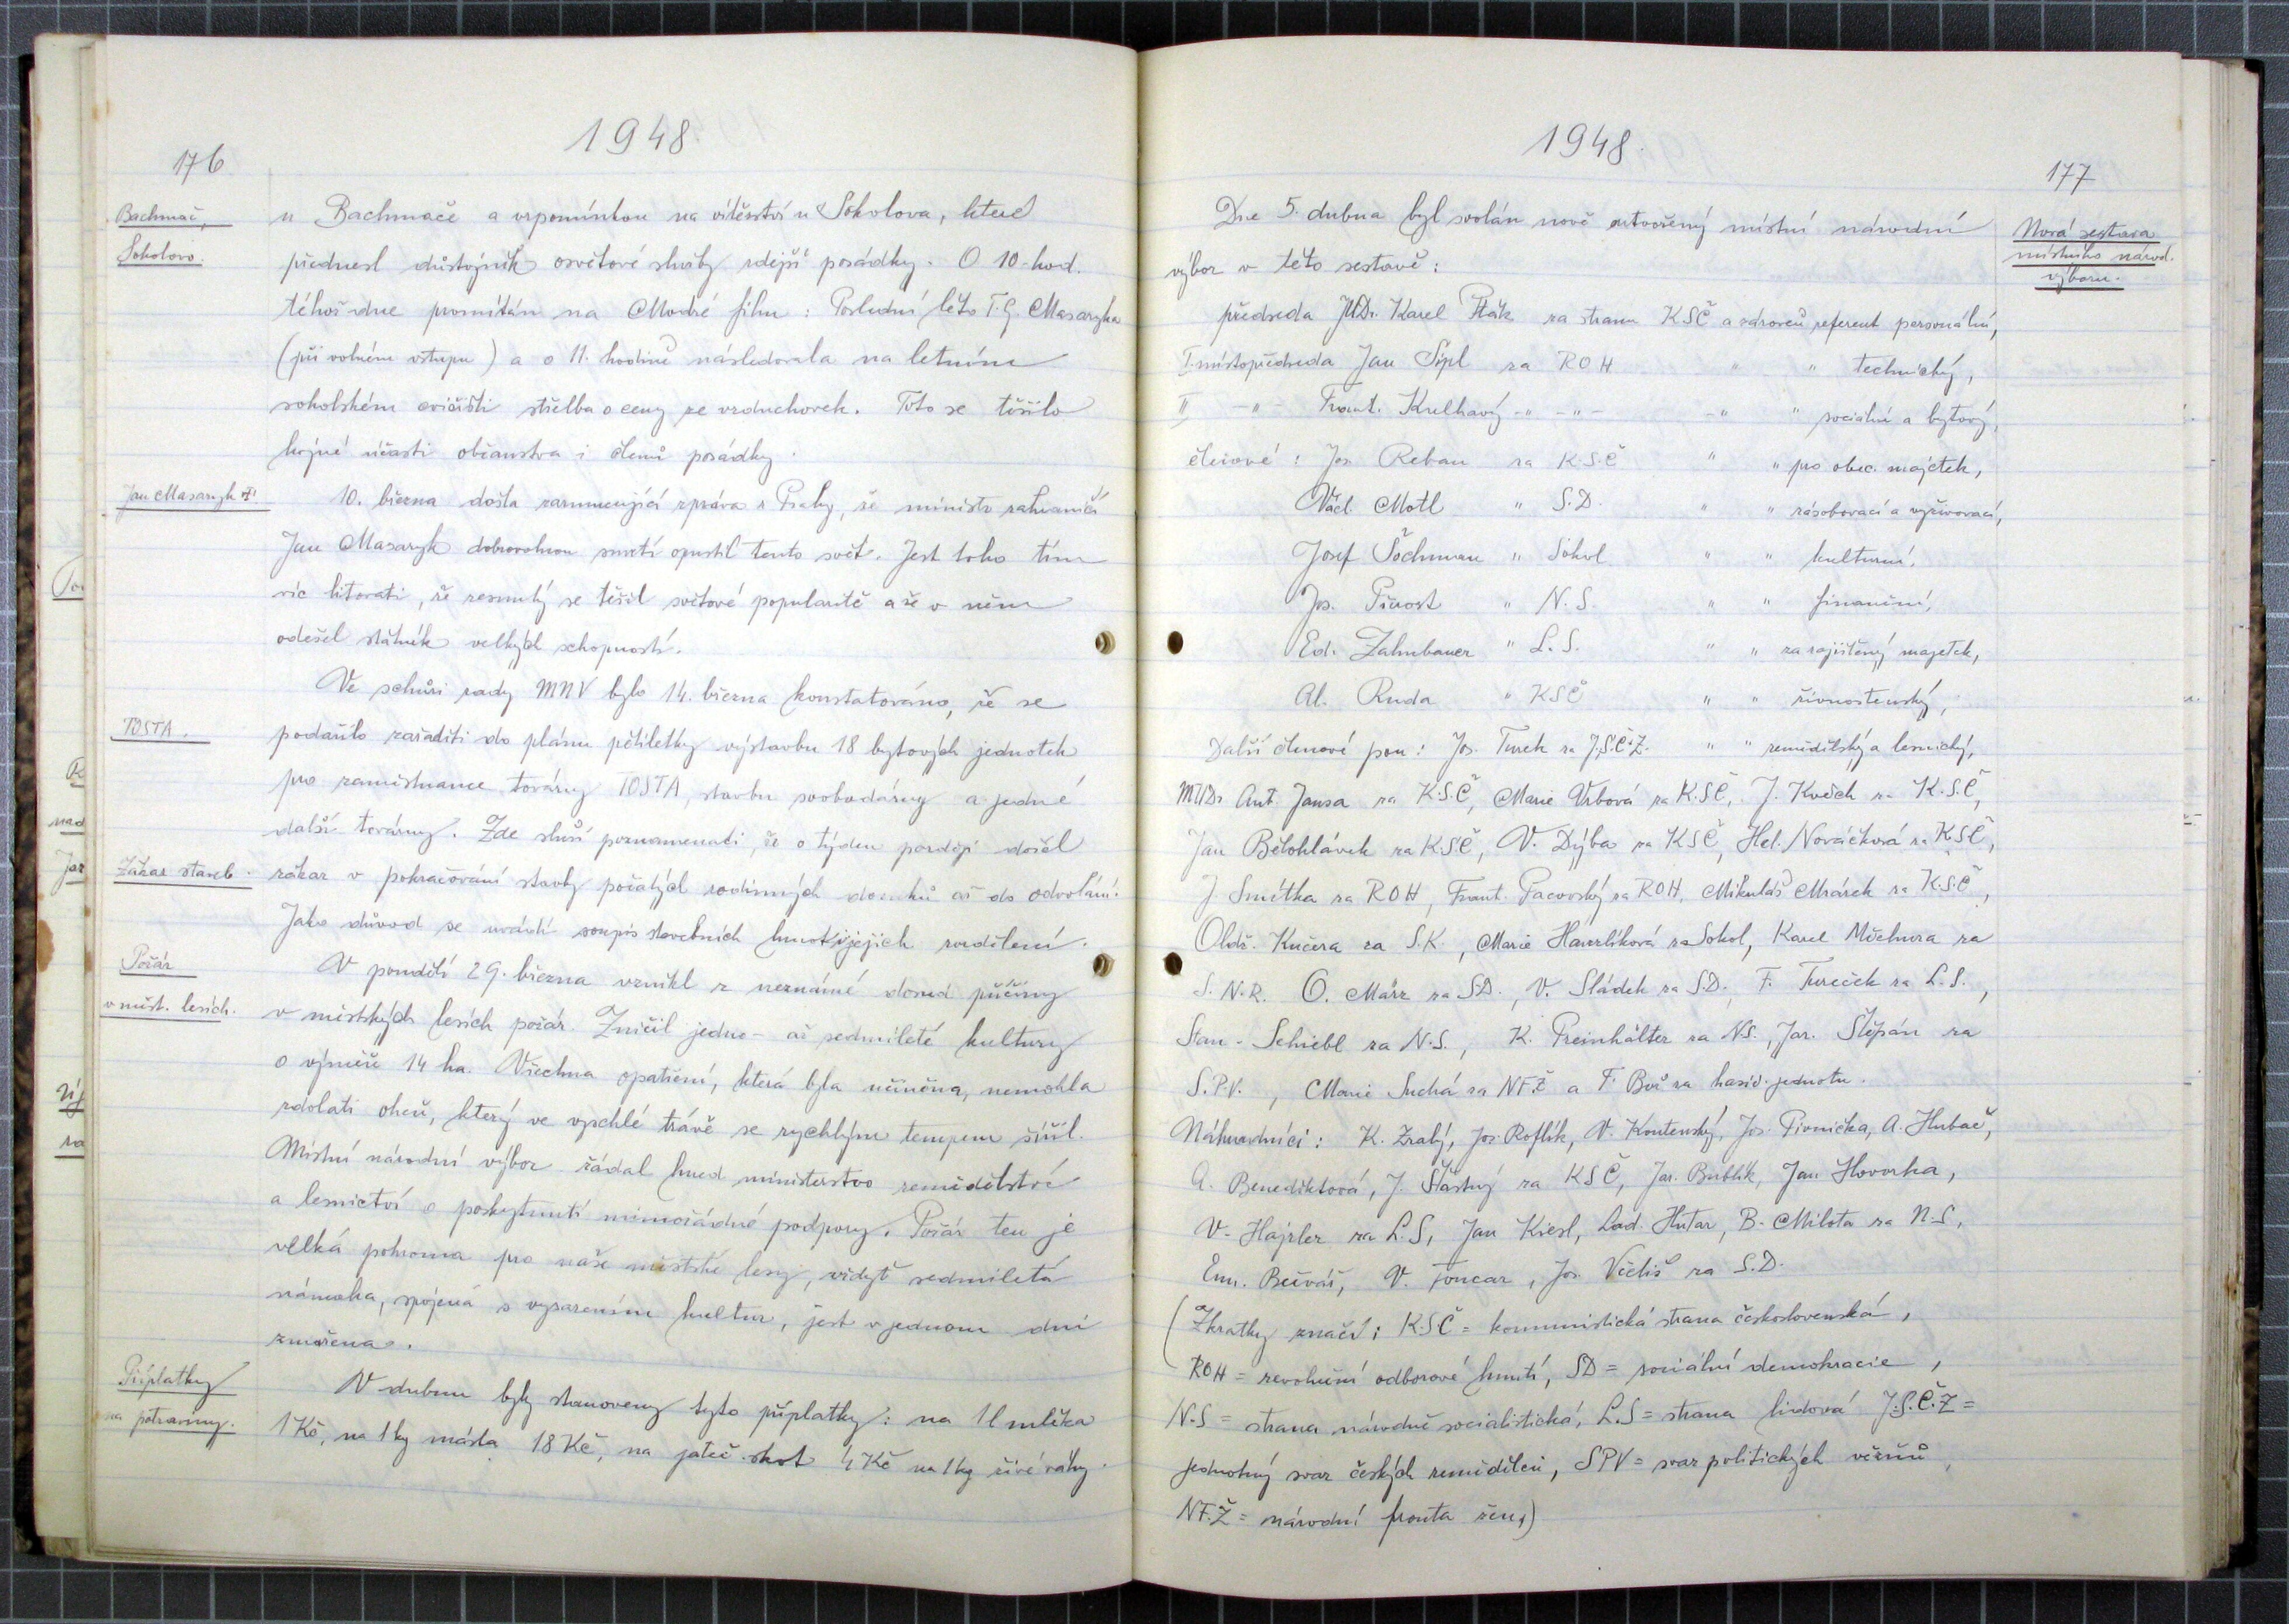 1948.
176
Bachmač,
Sokolovo.
u Bachmače a vzpomínkou na vítězství u Sokolova, které
přednesl důstojník osvětové služby zdejší posádky. O 10. hod.
téhož dne promítán na Modré film: Poslední léto T. G. Masaryka
(při volném vstupu) a o 11. hodině následovala na letním
sokolském cvičišti střelba o ceny ze vzduchovek. Toto se těšilo
hojné účasti občanstva i členů posádky.
Jan Masaryk †.
10. března došla zarmucující zpráva z Prahy, že ministr zahraničí
Jan Masaryk dobrovolnou smrtí opustil tento svět. Jest toho tím
víc litovati, že zesnulý se těšil světové popularitě a že v něm
odešel státník velkých schopností.
Ve schůzi rady MNV bylo 14. března konstatováno, že se
TOSTA.
podařilo zařaditi do plánu pětiletky výstavbu 18 bytových jednotek
pro zaměstnance továrny TOSTA, stavbu svobodárny a jedné
další továrny. Zde sluší poznamenati, že o týden později došel
Zákaz staveb.
zákaz v pokračování stavby počatých rodinných domků až do odvolání.
Jako důvod se uvádí soupis stavebních hmot i jejich rozdělení.
Požár
v měst. lesích.
V pondělí 29. března vznikl z neznámé dosud příčiny
v městských lesích požár. Zničil jedno- až sedmileté kultury
o výměře 14 ha. Všechna opatření, která byla učiněna, nemohla
zdolati oheň, který ve vyschlé trávě se rychlým tempem šířil.
Místní národní výbor žádal hned ministerstvo zemědělství
a lesnictví o poskytnutí mimořádné podpory. Požár ten je
velká pohroma pro naše městské lesy, vždyť sedmiletá
námaha, spojená s vysazením kultur, jest v jednom dni
zmařena.
Příplatky
na potraviny.
V dubnu byly stanoveny tyto příplatky: na 1 l mléka
1 Kč, na 1 kg másla 18 Kč, na jateč. skot 4 Kč na 1 kg živé váhy.
1948.
177
Nová sestava
místního národ.
výboru.
Dne 5. dubna byl svolán nově utvořený místní národní
výbor v této sestavě:
předseda JUDr. Karel Pták za stranu KSČ a zároveň referent personální,
I. místopředseda Jan Šípl za ROH " " technický,
II -"- Frant. Kulhavý -"- -"- -" " sociální a bytový,
členové: Jos. Reban za K.S.Č " " pro obec. majetek,
Václ. Motl " S.D. " " zásobovací a vyživovací,
Josef Šochman " Sokol " " kulturní,
Jos. Pivrost " N.S. " " finanční,
Ed. Zahnbauer " L.S. " " za zajištěný majetek,
Al. Ruda " KSČ " " živnostenský,
Další členové jsou: Jos. Turek za J.S.Č.Z. " " zemědělský a lesnický,
MUDr. Ant. Jansa za K.S.Č, Marie Vrbová za K.S.Č, J. Kvěch za K.S.Č,
Jan Bělohlávek za K.S.Č, V. Dýba za KSČ, Hel. Nováčková za K.S.Č,
J. Smítka za ROH, Frant. Pacovský za ROH, Mikuláš Mrázek za K.S.Č,
Oldř. Kučera za S.K., Marie Havrlíková za Sokol, Karel Míchura za
S.N.R. O. März za S.D., V. Sládek za S.D., F. Tureček za L.S.,
Stan. Schiebl za N.S., K. Preinhälter za N.S., Jar. Štěpán za
S.P.V., Marie Suchá za NFŽ a F. Bůž za hasič. jednotu.
Náhradníci: K. Zralý, Jos. Roflík, V. Koutenský, Jos. Pivnička, A. Hubač,
A. Benediktová, J. Šťastný za KSČ, Jar. Bublík, Jan Hovorka,
V. Hajzler za L.S, Jan Kiesl, Lad. Hutar, B. Milota za N.S,
Em. Bečvář, V. Foncar, Jos. Večliš za S.D.
(Zkratky značí: K.S.Č = komunistická strana československá,
ROH = revoluční odborové hnutí, SD = sociální demokracie,
N.S = strana národně socialistická, L.S = strana lidová J.S.Č.Z =
jednotný svaz českých zemědělců, SPV = svaz politických vězňů,
NF.Ž = národní fronta žen,)